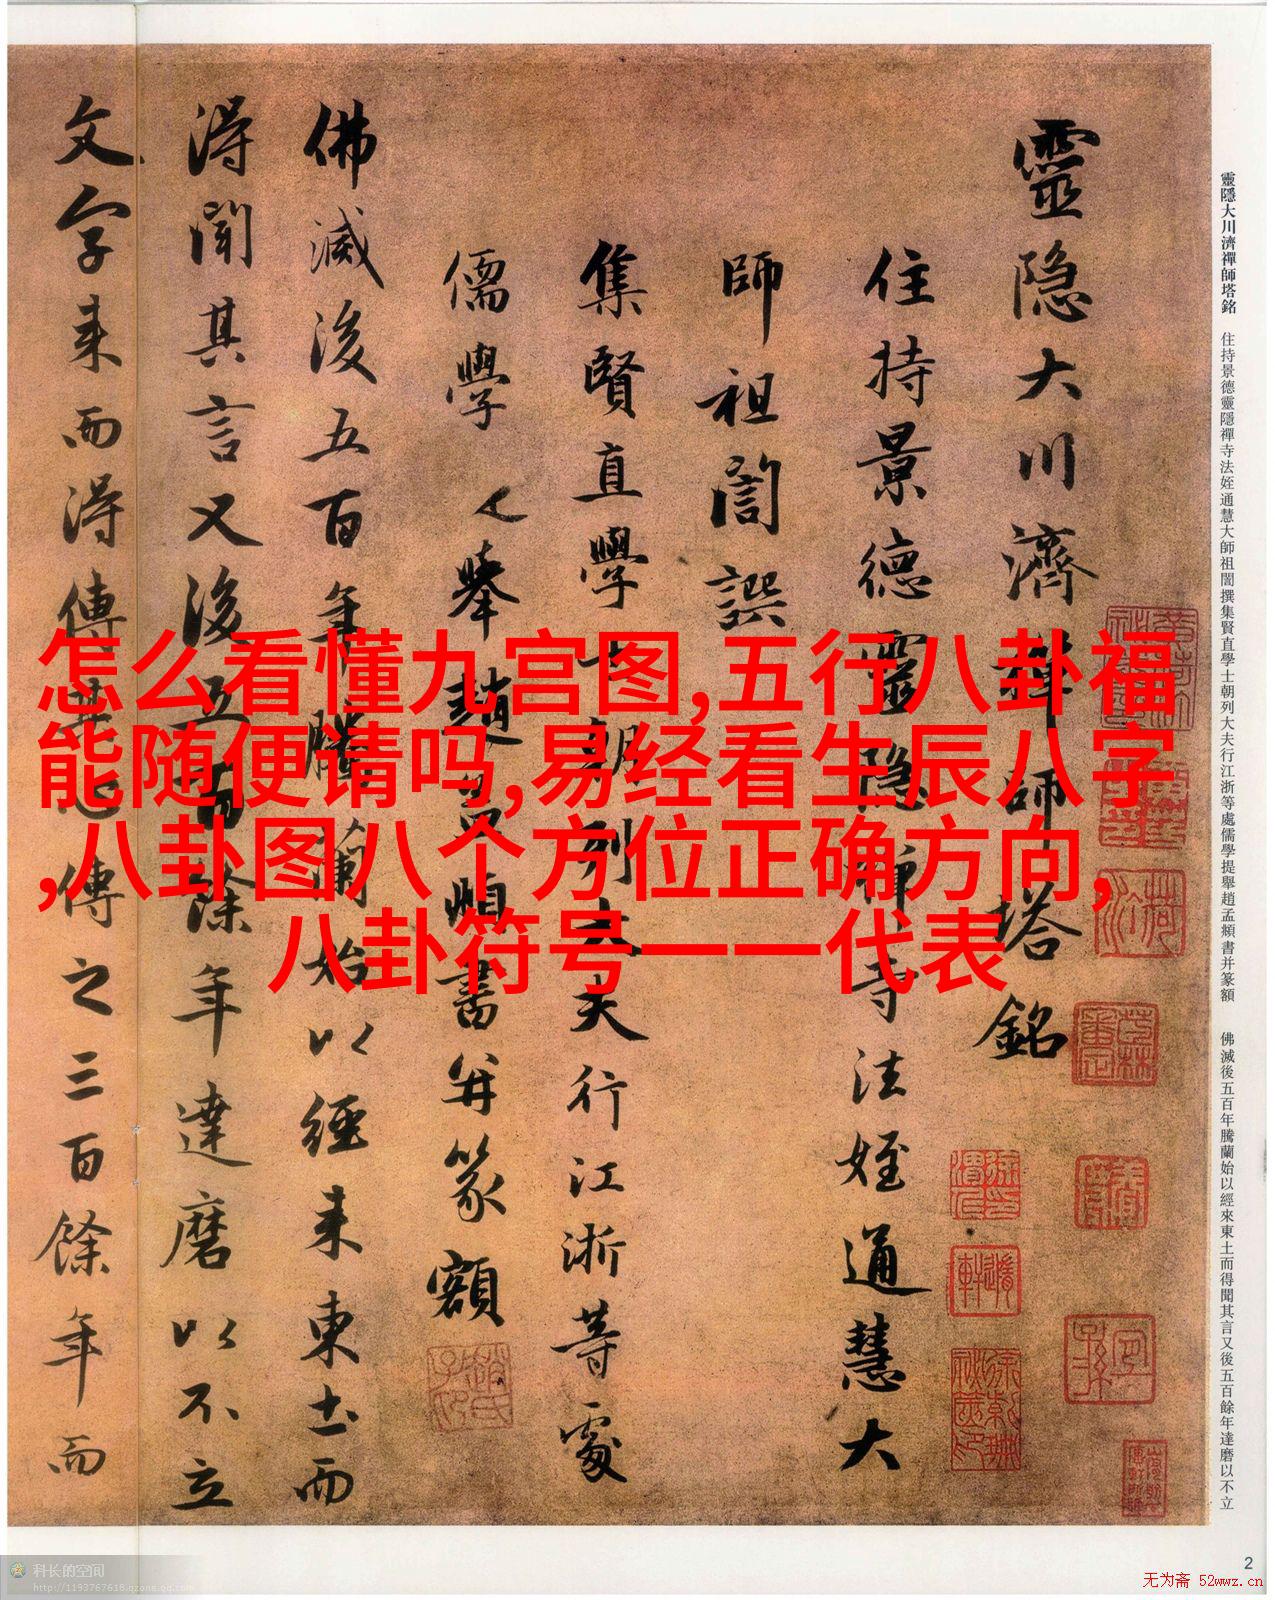 靈隱大川濟禪師塔銘
住持景德靈隱禪寺法姪通慧大
師祖誾譔
集賢直學士朝列大夫行江浙等處
儒學提舉趙孟頫書并篆額
佛滅後五百年騰蘭始以經来東土而
得聞其言又後五百餘年達磨以不立
文字来而得傳其心傳之三百餘年而
靈隱大川濟禪師塔銘 住持景德靈隱禪寺法姪通慧大師祖誾撰集賢直學士朝列大夫行江浙等處儒學提舉趙孟頫書并篆額 佛滅後五百年騰蘭始以經來東土而得聞其言又後五百餘年達磨以不立
怎么看懂九宫图,五行八卦福
能随便请吗,易经看生辰八字
,八卦图八个方位正确方向,
八卦符号一一代表
科长的空间
http://1193767618.qzone.qq.com
2
无为斋 52wwz.cn